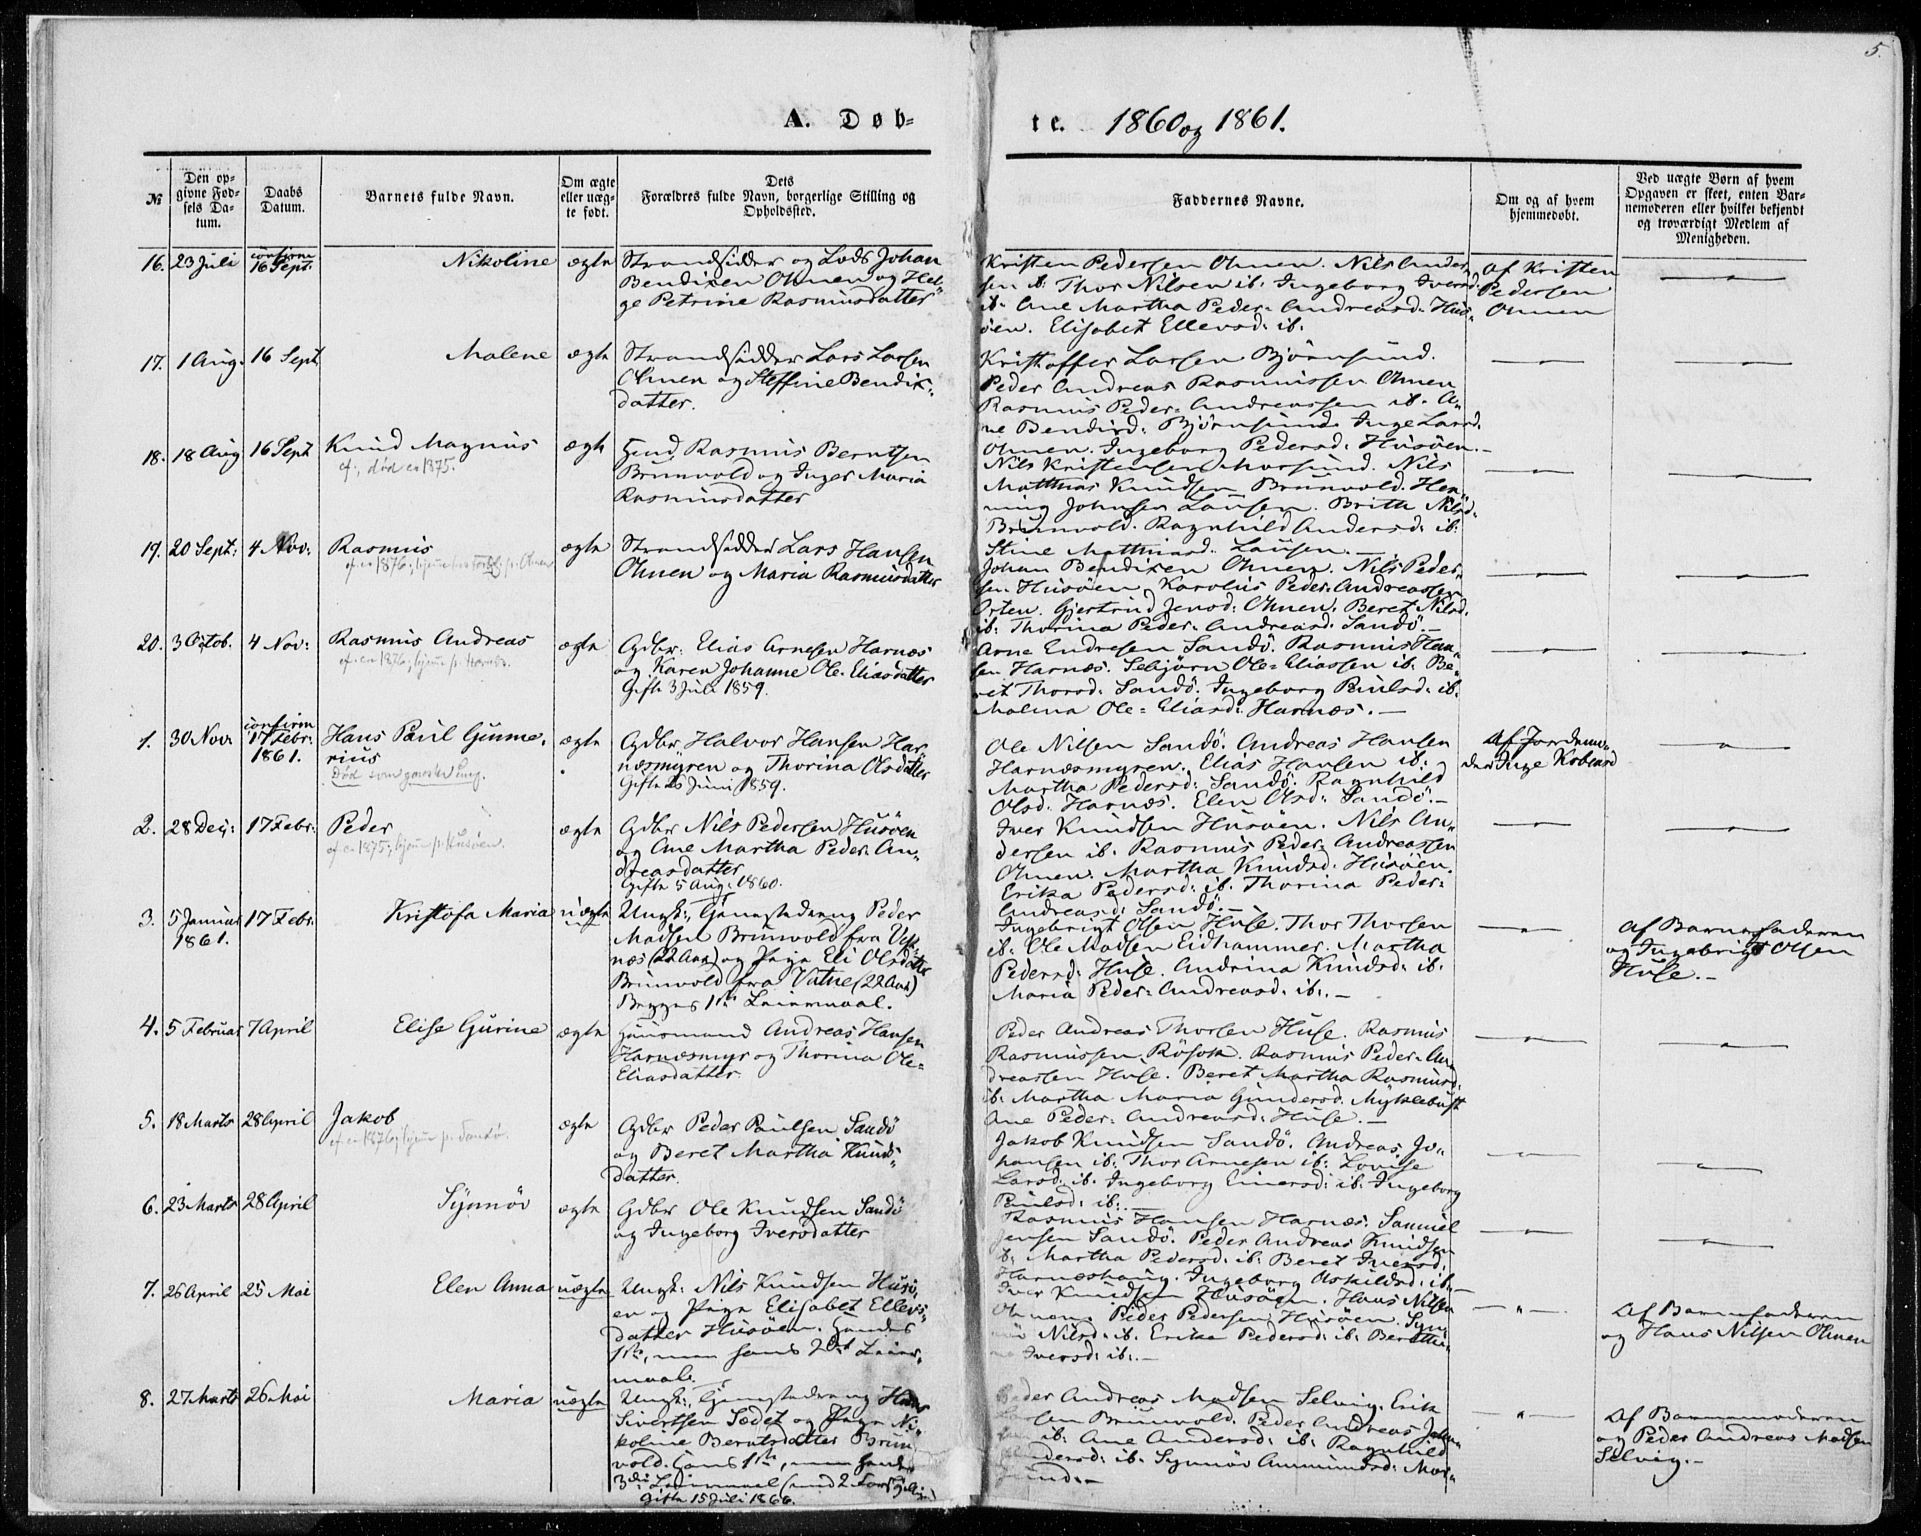 5.
A. Døb-
te. 1860 og 1861.
№
Den op-
givne Fød-
sels Da-
tum.
Daabs
Datum.
Barnets fulde Navn.
Om ægte
eller uæg-
te født.
Dets
Forældres fulde Navn, borgerlige Stilling og
Opholdssted.
Faddernes Navne.
Om og af hvem
hjemmedøbt.
Ved uægte Børn af hvem
Opgaven er skeet, enten Bar-
nemoderen eller hvilket bekjendt
og troværdigt Medlem af
Menigheden.
16. 23 Juli
confirm
16 Sept.
Nikoline
ægte
Strandsidder og Lods Johan
Bendixen Ohnen og Hel-
ge Petrine Rasmusdatter
Kristen Pedersen Ohnen. Nils Ander-
sen ib: Thor Nilsen ib: Ingeborg Iversd:
ib. Ane Martha Peder-Andreasd. Hus-
øen. Elisabet Ellevsd: ib.
Af Kristen
Pedersen
Ohnen
17. 1 Aug. 16 Sept
Malene
ægte
Strandsidder Lars Larsen
Ohnen og Steffine Bendix-
datter.
Kristoffer Larsen Bjørnsund.
Peder Andreas Rasmussen Ohnen
Rasmus Peder-Andreassen ib. A-
ne Bendixd: Bjørnsund. Inge Larsd.
Ohnen. Ingeborg Pedersd: Husøen.
18. 18 Aug 16 Sept
Knud Magnus
cf. død en 1875.
ægte
Rasmus Berntsen
Brunvold og Inger Maria
Rasmusdatter
Nils Kristensen Morsund. Nils
Matthias Knudsen Brunvold. Hen-
ning Johnsen Lausen. Britha Nilsd.
Brunvold. Ragnhild Andersd: ib:
Stine Matthiasd. Lausen.
19. 20 Sept: 4 Nov:
Rasmus
ægte
Strandsidder Lars Hansen
Ohnen og Maria Rasmusdatter
Johan Bendixen Ohnen. Nils Peder-
sen Husøen, Karolus Peder-Andreassen
Orten. Gjertrud Jensd: Ohnen. Beret Nilsd.
ib: Thorina Peder-Andreasd. Sandø.
20. 3 Octob. 4 Nov:
Rasmus Andreas
cf. en 1876; hjem p. Harnæs.
ægte
Gdbr. Elias Arnesen Harnæs
og Karen Johanne Ole-Eliasdatter
Gifte 3 Juli 1859.
Arne Endresen Sandø. Rasmus Han-
sen Harnæs. Sebjørn Ole-Eliassen ib. Be-
ret Thorsd: Sandø. Ingeborg Paulsd: ib.
Malena Ole-Eliasd: Harnæs.
1. 30 Nov.
confirm
17 Febr.
1861.
Hans Paul Gunne-
rius
Død som ganske ung.
ægte
Gdbr. Halvor Hansen Har-
næsmyren og Thorina Olsdatter
Gifte 26 Juni 1859.
Ole Nilsen Sandø. Andreas Hansen
Harnæsmyren. Elias Hansen ib:
Martha Pedersd: Sandø. Ragnhild
Olsd. Harnæs. Elen Olsd: Sandø.
Af Jordemo-
der Inge
2. 28 Dec: 17 Febr.
Peder
cf. en 1875; hjem p. Husøen.
ægte
Gdbr Nils Pedersen Husøen
og Ane Martha Peder-An-
dreasdatter
Gifte 5 Aug. 1860.
Iver Knudsen Husøen. Nils An-
dersen ib. Rasmus Peder-Andreassen
Ohnen. Martha Knudsd. Husøen.
Erika Pedersd: ib. Thorina Peder-
Andreasd: Sandø.
3. 5 Januar
1861.
17 Febr.
Kristofa Maria
uægte
Ungk., Gjenstedreng Peder
Madsen Brunvold fra Vest-
næs (22 Aar) og Pige Eli Olsdatter
Brunvold fra Vatne (22 Aar)
Begges 1ste Leiermaal.
Ingebrigt Olsen Huse. Thor Thorsen
ib. Ole Madsen Eidhammer. Martha
Pedersd: Huse. Andrina Knudsd: ib.
Maria Peder-Andreasd: ib.
Af Barnefaderen
og Ingebrigt Olsen
Huse.
4. 5 Februar 7 April
Elise Gurine
ægte
Huusmand Andreas Hansen
Harnæsmyr og Thorina Ole-
Eliasdatter.
Peder Andreas Thorsen Huse. Rasmus
Rasmussen Røsok. Rasmus Peder-An-
dreassen Huse. Beret Martha Rasmusd.
ib. Martha Maria Gundersd. Myklebust
Ane Peder-Andreasd: Huse.
5. 18 Marts 28 April
Jakob
cf. en 1876; hjem p. Sandø.
ægte
Gdbr Peder Paulsen Sandø
og Beret Martha Knuds-
datter.
Jakob Knudsen Sandø. Andreas Jo-
hansen ib. Thor Arnesen ib: Lovise
Larsd. ib. Ingeborg Einersd: ib. Ingeborg
Paulsd: ib.
6. 23 Marts 28 April
Synnøv
ægte
Gdbr Ole Knudsen Sandø
og Ingeborg Iversdatter
Rasmus Hansen Harnæs. Samuel
Jensen Sandø. Peder Andreas Knudsen
ib. Martha Pedersd: ib. Beret Iversd.
Harnæshaug. Ingeborg Askildsd: ib.
7. 26 April 25 Mai
Elen Anna
uægte
Ungk: Nils Knudsen Husø-
en og Pige Elisabet Ellevs-
datter Husøen. Hendes
1ste, men hans 2det Leier-
maal.
Iver Knudsen Husøen. Hans Nilsen
Ohnen. Peder Pedersen Husøen. Syn-
nøv Nilsd. ib. Erika Pedersd: ib. Berethe-
na Iversd: ib.
Af Barnefaderen
og Hans Nilsen Ohnen
8. 27 Marts 26 Mai
Maria
uægte
Ungk., Gjenstedreng Hans
Sivertsen Sødet og Pige Ni-
koline Berntsdatter Brun-
vold. Hans 1ste, men hendes
3die Leiermaal (med 2
Gifte 15 Juli 1866.
Peder Andreas Madsen Selvig. Erik
Larsen Brunvold. Peder Andreas Johan-
sen ib: Ane Andersd: ib: Ragnhild
Andersd: ib. Synnøv Ammundsd: Mor-
sund.
Af Barnemoderen
og Peder Andreas Madsen
Selvig.